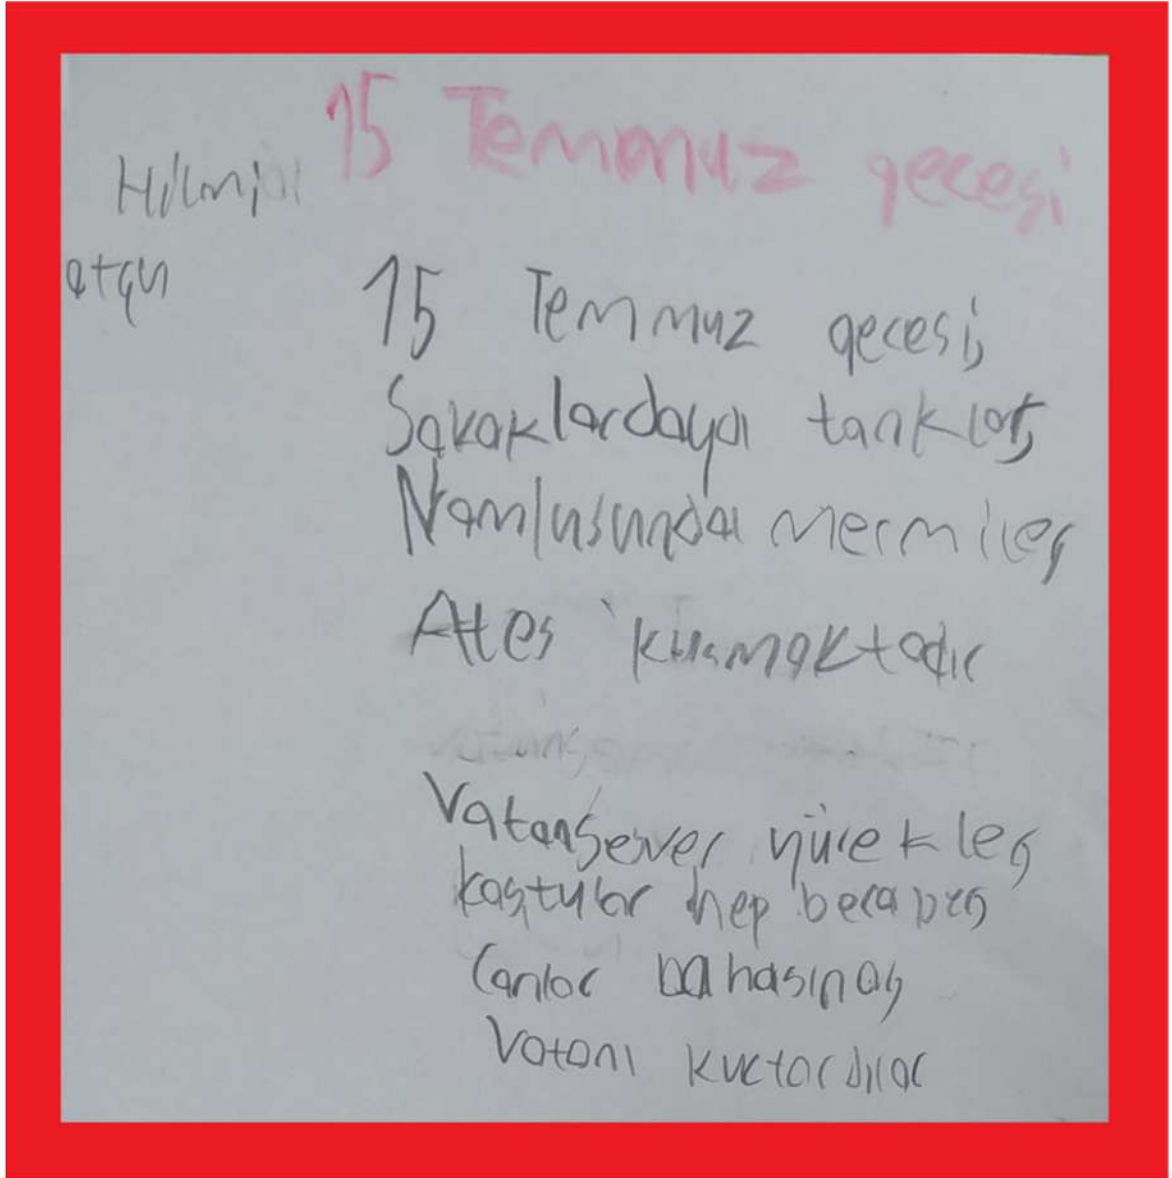 15 Temmuz gecesi
15 Temmuz gecesi,
Sokaklardaydı tanklar,
Namlusunda mermiler,
Ateş kusmaktadır
Vatansever yürekler,
koştular hep beraber,
Canlar bahasına,
Vatanı kurtardılar